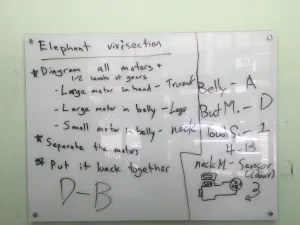 Elephant vivisection
* Diagram all motors +
1-2 levels of gears
- Large motor in head - Trunk
- Large motor in belly - Legs
- Small motor in belly - neck
* Separate the motors
* Put it back together
D-B
Belly - A
But M. - D
S. - 2
4 - B
neck M - Sensor
(colour)
3